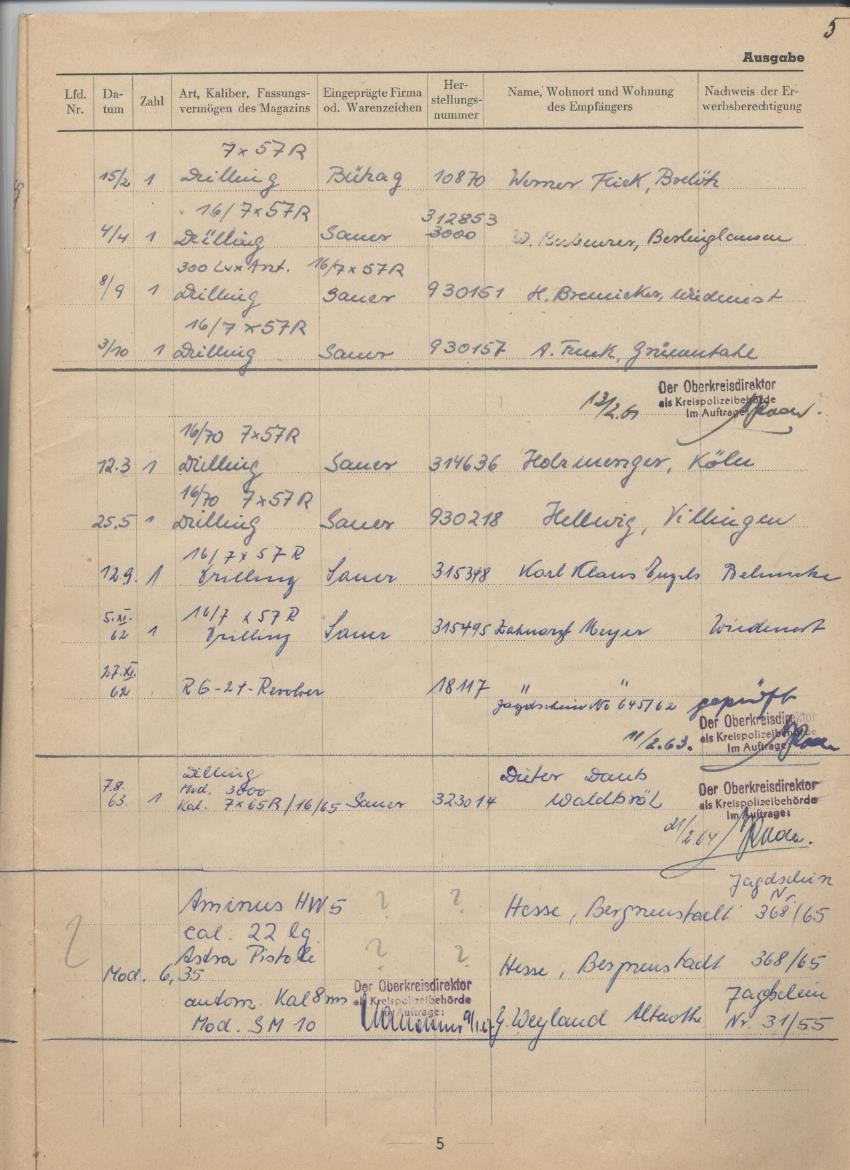 5
Ausgabe
Lfd. Nr.
Da- tum
Zahl
Art, Kaliber, Fassungs- vermögen des Magazins
Eingeprägte Firma od. Warenzeichen
Her- stellungs- nummer
Name, Wohnort und Wohnung des Empfängers
Nachweis der Er- werbsberechtigung
7x57R
15/2 1 Drilling Bühag 10870 Werner Flick,
16/7x57R 312853
4/4 1 Drilling Sauer 3000 W. Berlinghausen
300 Lux Arzt. 16/7x57R
8/9 1 Drilling Sauer 930151 H. Bremicker, Wiedenest
16/7x57R
3/10 1 Drilling Sauer 930157 A. Funk,
Der Oberkreisdirektor
13/2.61 als Kreispolizeibehörde
Im Auftrage:
16/70 7x57R
12.3 1 Drilling Sauer 314636 Holzmenger, Köln
16/70 7x57R
25.5 1 Drilling Sauer 930218 Hellwig, Villingen
16/7x57R
12.9. 1 Drilling Sauer 315348 Karl Klaus Engels
5.XI. 16/7x57R
62 1 Drilling Sauer 315495 Zahnarzt Meyer Wiedenest
27.XI.
62 RG-24-Revolver 18117 " "
Jagdschein No 645/62 geprüft
Der Oberkreisdirektor
11/2.63. als Kreispolizeibehörde
Im Auftrage:
Drilling Dieter
7.8. Mod. 3000
63. 1 Kal. 7x65R/16/65 Sauer 323014 Waldbröl
Der Oberkreisdirektor
als Kreispolizeibehörde
Im Auftrage:
21/2.64
Jagdschein
Nr.
Aminus HW5 ? ? Hesse, Bergneustadt 368/65
cal. 22 lg.
? Astra Pistole ? ?
Mod. 6,35 Hesse, Bergneustadt 368/65
Der Oberkreisdirektor
autom. Kal 8mm als Kreispolizeibehörde Jagdschein
Im Auftrage:
Mod. SM 10 9/1.67 G. Weyland Nr. 31/55
5